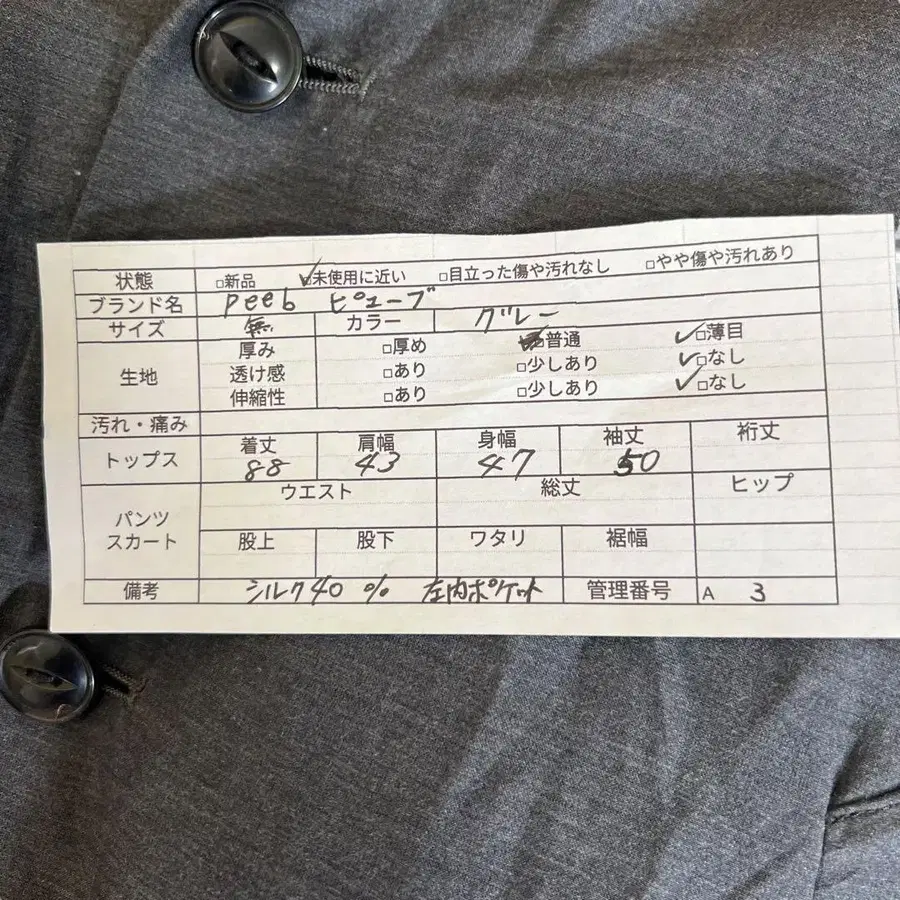 状態 □新品 ✓未使用に近い □目立った傷や汚れなし □やや傷や汚れあり
ブランド名 peeb ピューブ
サイズ 無 カラー グレー
生地 厚み □厚め □普通 ✓□薄目
透け感 □あり □少しあり ✓□なし
伸縮性 □あり □少しあり ✓□なし
汚れ・痛み
トップス 着丈 肩幅 身幅 袖丈 裄丈
88 43 47 50
パンツ スカート ウエスト 総丈 ヒップ
股上 股下 ワタリ 裾幅
備考 シルク40% 左内ポケット 管理番号 A 3